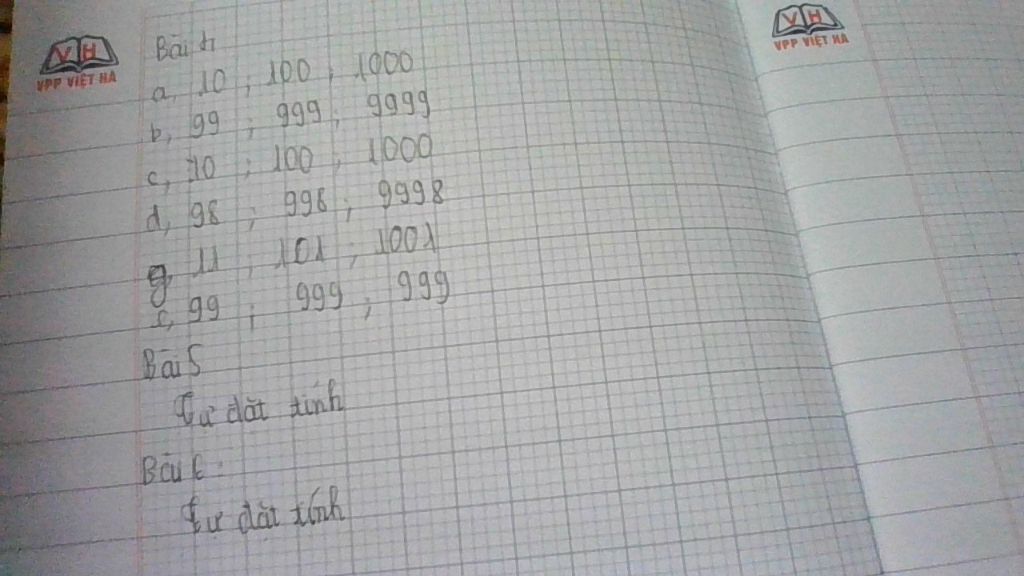 VH
VPP VIỆT HÀ
VH
VPP VIỆT HÀ
Bài 4
a, 10 ; 100 ; 1000
b, 99 ; 999 ; 9999
c, 10 ; 100 ; 1000
d, 98 ; 998 ; 9998
g, 11 ; 101 ; 1001
99 ; 999 ; 999
Bài 5
Tự đặt tính
Bài 6
Tự đặt tính